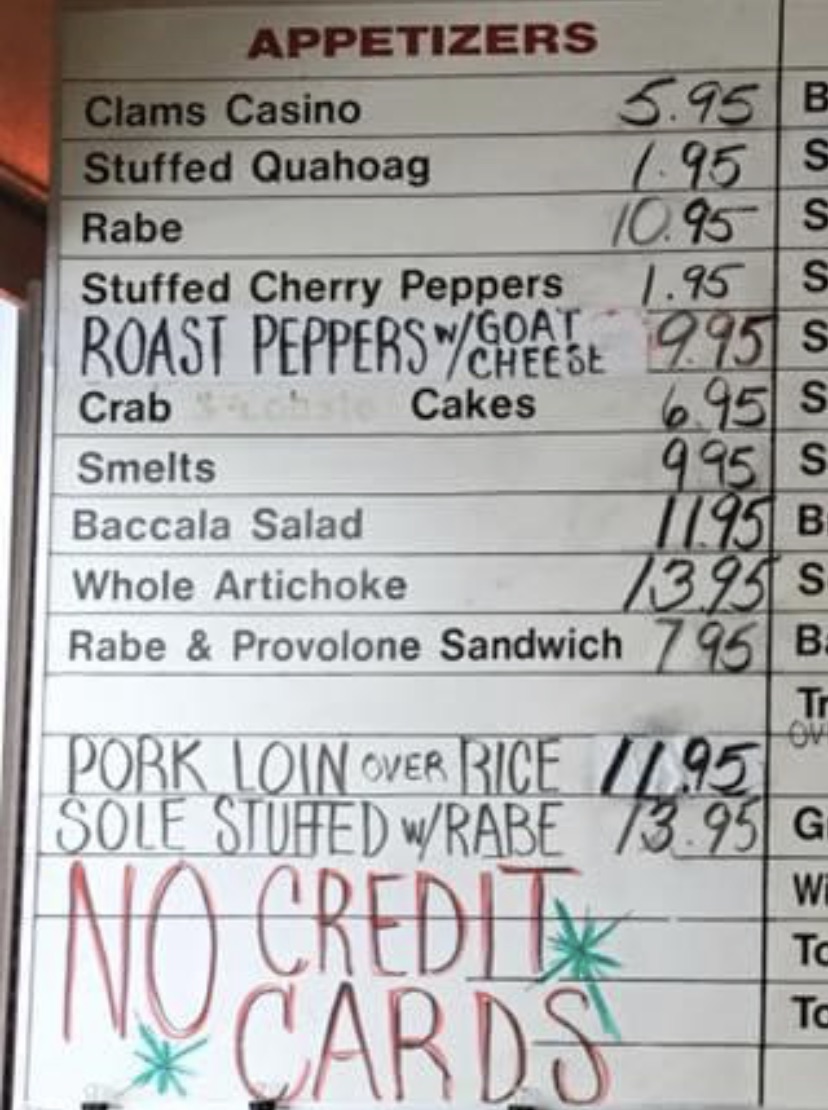 APPETIZERS
Clams Casino 5.95 B
Stuffed Quahoag 1.95 S
Rabe 10.95 S
Stuffed Cherry Peppers 1.95 S
ROAST PEPPERS w/ GOAT CHEESE 9.95 S
Crab Cakes 6.95 S
Smelts 9 95 S
Baccala Salad 11.95 B
Whole Artichoke 13.95 S
Rabe & Provolone Sandwich 7 95 Ba
Tr
OV
PORK LOIN OVER RICE 11.95
SOLE STUFFED w/RABE 13.95 G
Wi
NO CREDIT To
CARDS To